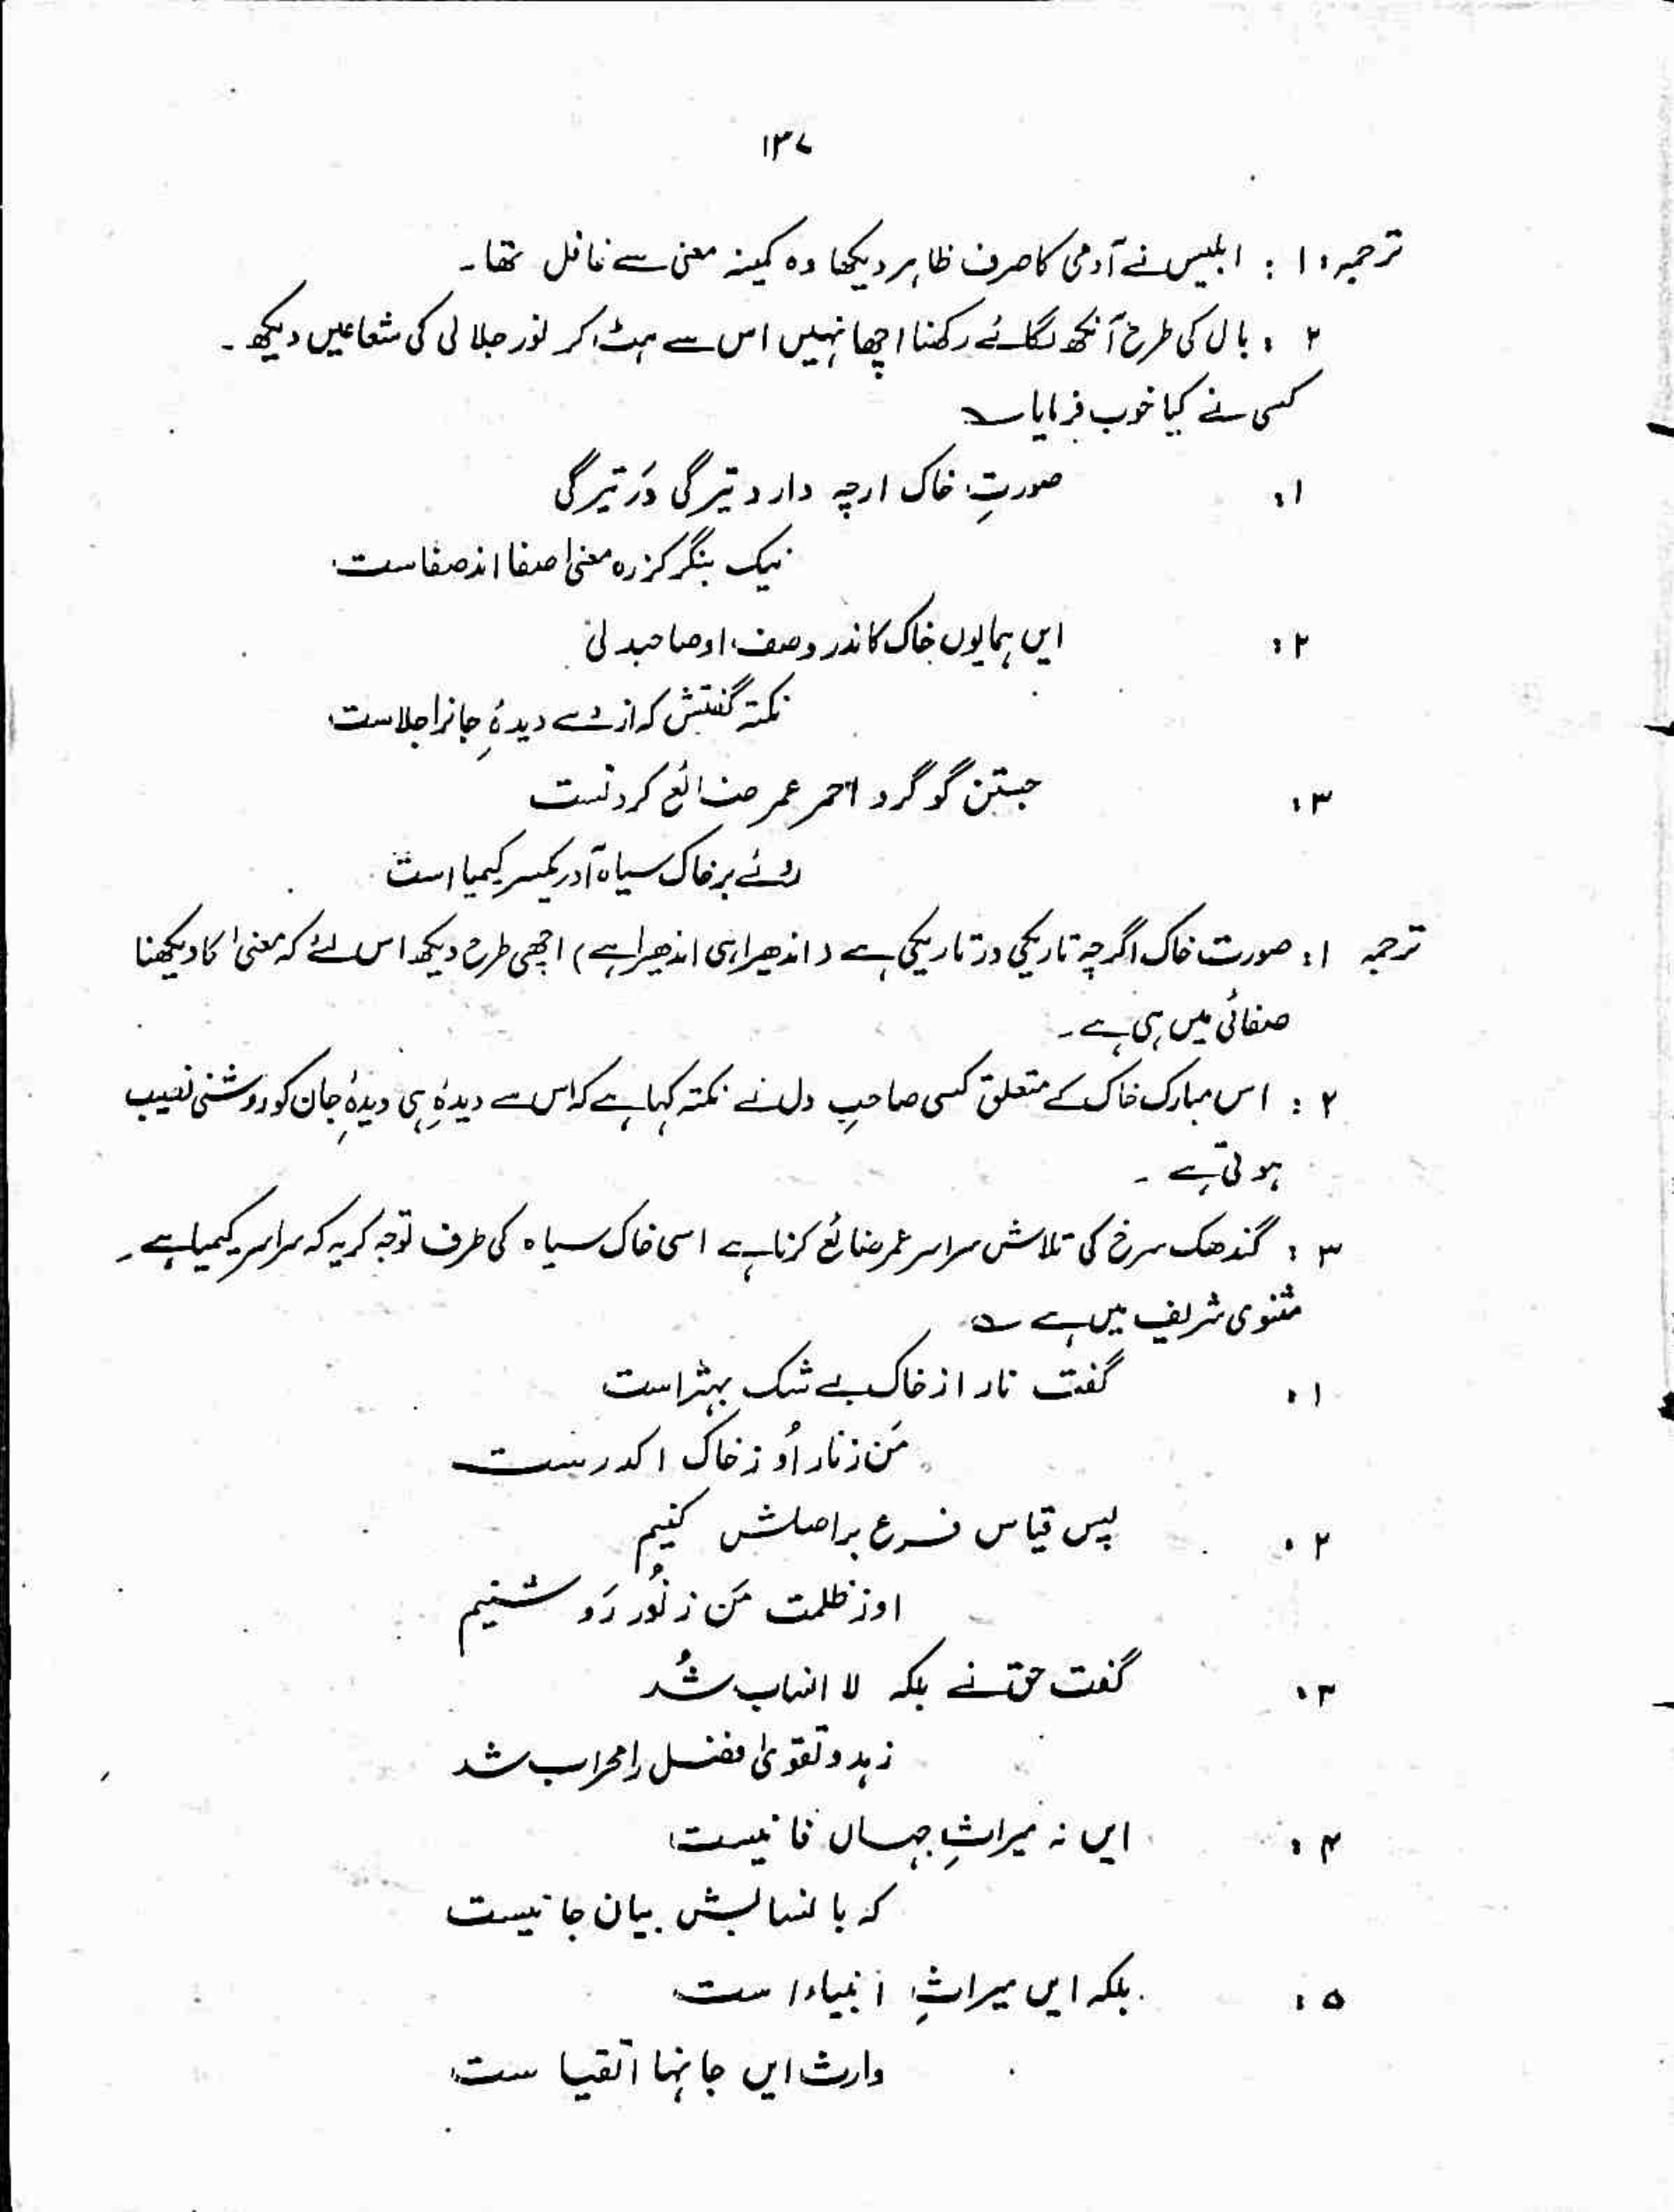 ۱۳۷
ترجمہ ۱ : ابلیس نے آدمی کا صرف ظاہر دیکھا وہ کمینہ معنی سے غافل تھا۔
۲ : بال کی طرح آنکھ لگائے رکھنا اچھا نہیں اس سے ہٹ کر نور جلالی کی شعاعیں دیکھ۔
کسی نے کیا خوب فرمایا ؎
۱: صورتِ خاک ارچہ دارد تیرگی دَر تیرگی
نیک بنگر کز رہ معنیٰ صفا اندر صفاست
۲: ایں ہمایوں خاک کاندر وصف او صاحبدلی
نکتہ گفتش کہ از وے دیدۂِ جانرا جلاست
۳: جستن گوگرد احمر عمر ضائع کردنست
روئے بر خاک سیاہ آور یکسر کیمیا است
ترجمہ ۱: صورت خاک اگرچہ تاریکی در تاریکی ہے (اندھیرا ہی اندھیرا ہے) اچھی طرح دیکھ اس لئے کہ معنیٰ کا دیکھنا
صفائی میں ہی ہے۔
۲: اس مبارک خاک کے متعلق کسی صاحبِ دل نے نکتہ کہا ہے کہ اس سے دیدۂِ ہی دیدۂِ جان کو روشنی نصیب
ہوتی ہے۔
۳: گندھک سرخ کی تلاش سراسر عمر ضائع کرنا ہے اسی خاک سیاہ کی طرف توجہ کر یہ کہ سراسر کیمیا ہے۔
مثنوی شریف میں ہے ؎
۱: گفت نار از خاک بے شک بہتر است
مَن ز نار اُو ز خاک اکدرست
۲: پس قیاس فرع بر اصلش کنیم
او ز ظلمت مَن ز نُور رَوشنیم
۳: گفت حق نے بلکہ لا انساب شُد
زہد و تقویٰ فضل را محراب شد
۴: ایں نہ میراثِ جہاں فانیست
کہ بانسابش بیان جانیست
۵: بلکہ ایں میراثِ انبیاء است
وارث ایں جانہا اتقیا ست